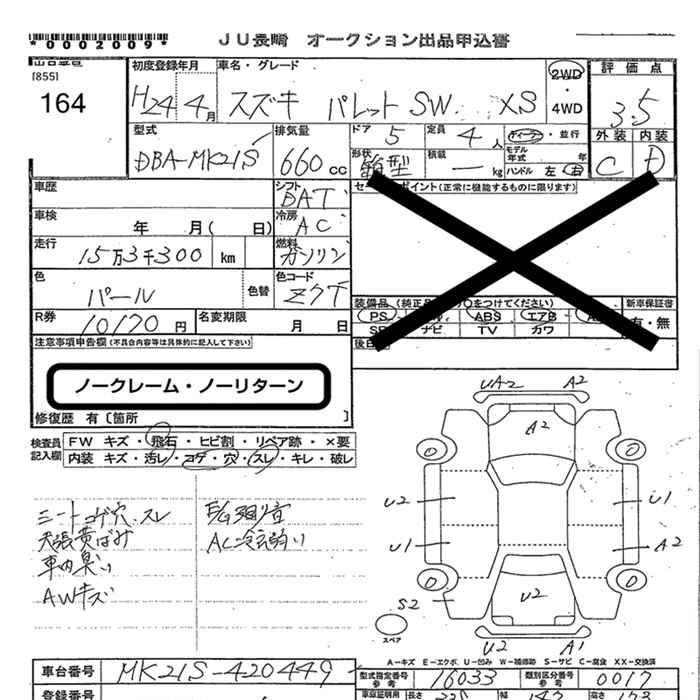 *0002009*
JU長崎 オークション出品申込書
[855]
164
初度登録年月 車名・グレード 2WD ・ 4WD 評価点
H24年 4月 スズキ パレットSW XS 3.5
外装 内装
C D
型式 排気量 ドア 5 定員 4人 ディーラー・並行
DBA-MK21S 660cc 形状 箱型 積載 ― kg モデル年式 年
ハンドル 左 右
車歴 シフト DAT
車検 年 月( 日) 冷房 AC
走行 15万3千300 km 燃料 ガソリン
色 パール 色替 色コード ZQT
R券 10170円 名変期限 月 日
ポイント(正常に機能するものに限ります)
装備品 (純正品 ○をつけてください) 新車保証書
PS ABS エアB 有・無
ナビ TV カワ
後日
注意事項申告欄(不具合内容等は具体的に記入して下さい)
ノークレーム・ノーリターン
修復歴 有〔箇所 〕
検査員記入欄 FW キズ・飛石・ヒビ割・リペア跡・×要
内装 キズ・汚レ・コゲ・穴・スレ・キレ・破レ
シートコゲ穴.スレ
天張黄ばみ
車内臭い
AWキズ
E/G廻り音
AC冷え弱い
UA2 A2
A2
0 0
U2 U1
U1 A2
0 0
S2 U2
スペア
U2 A1
A-キズ E-エクボ U-凹み W-補修跡 S-サビ C-腐食 XX-交換済
車台番号 MK21S-420449
型式指定番号 参考 16033 類別区分番号 参考 0017
登録番号
車庫証明用 長さ 幅 高さ